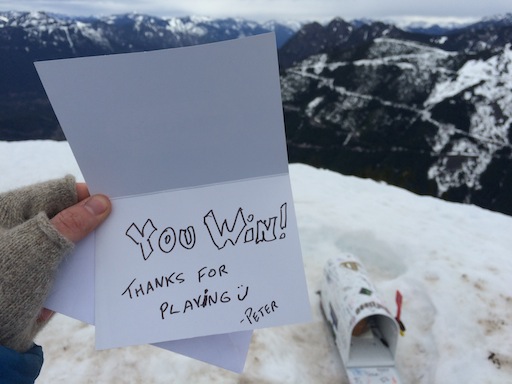 You Win!
THANKS FOR
PLAYING Ü
-PETER